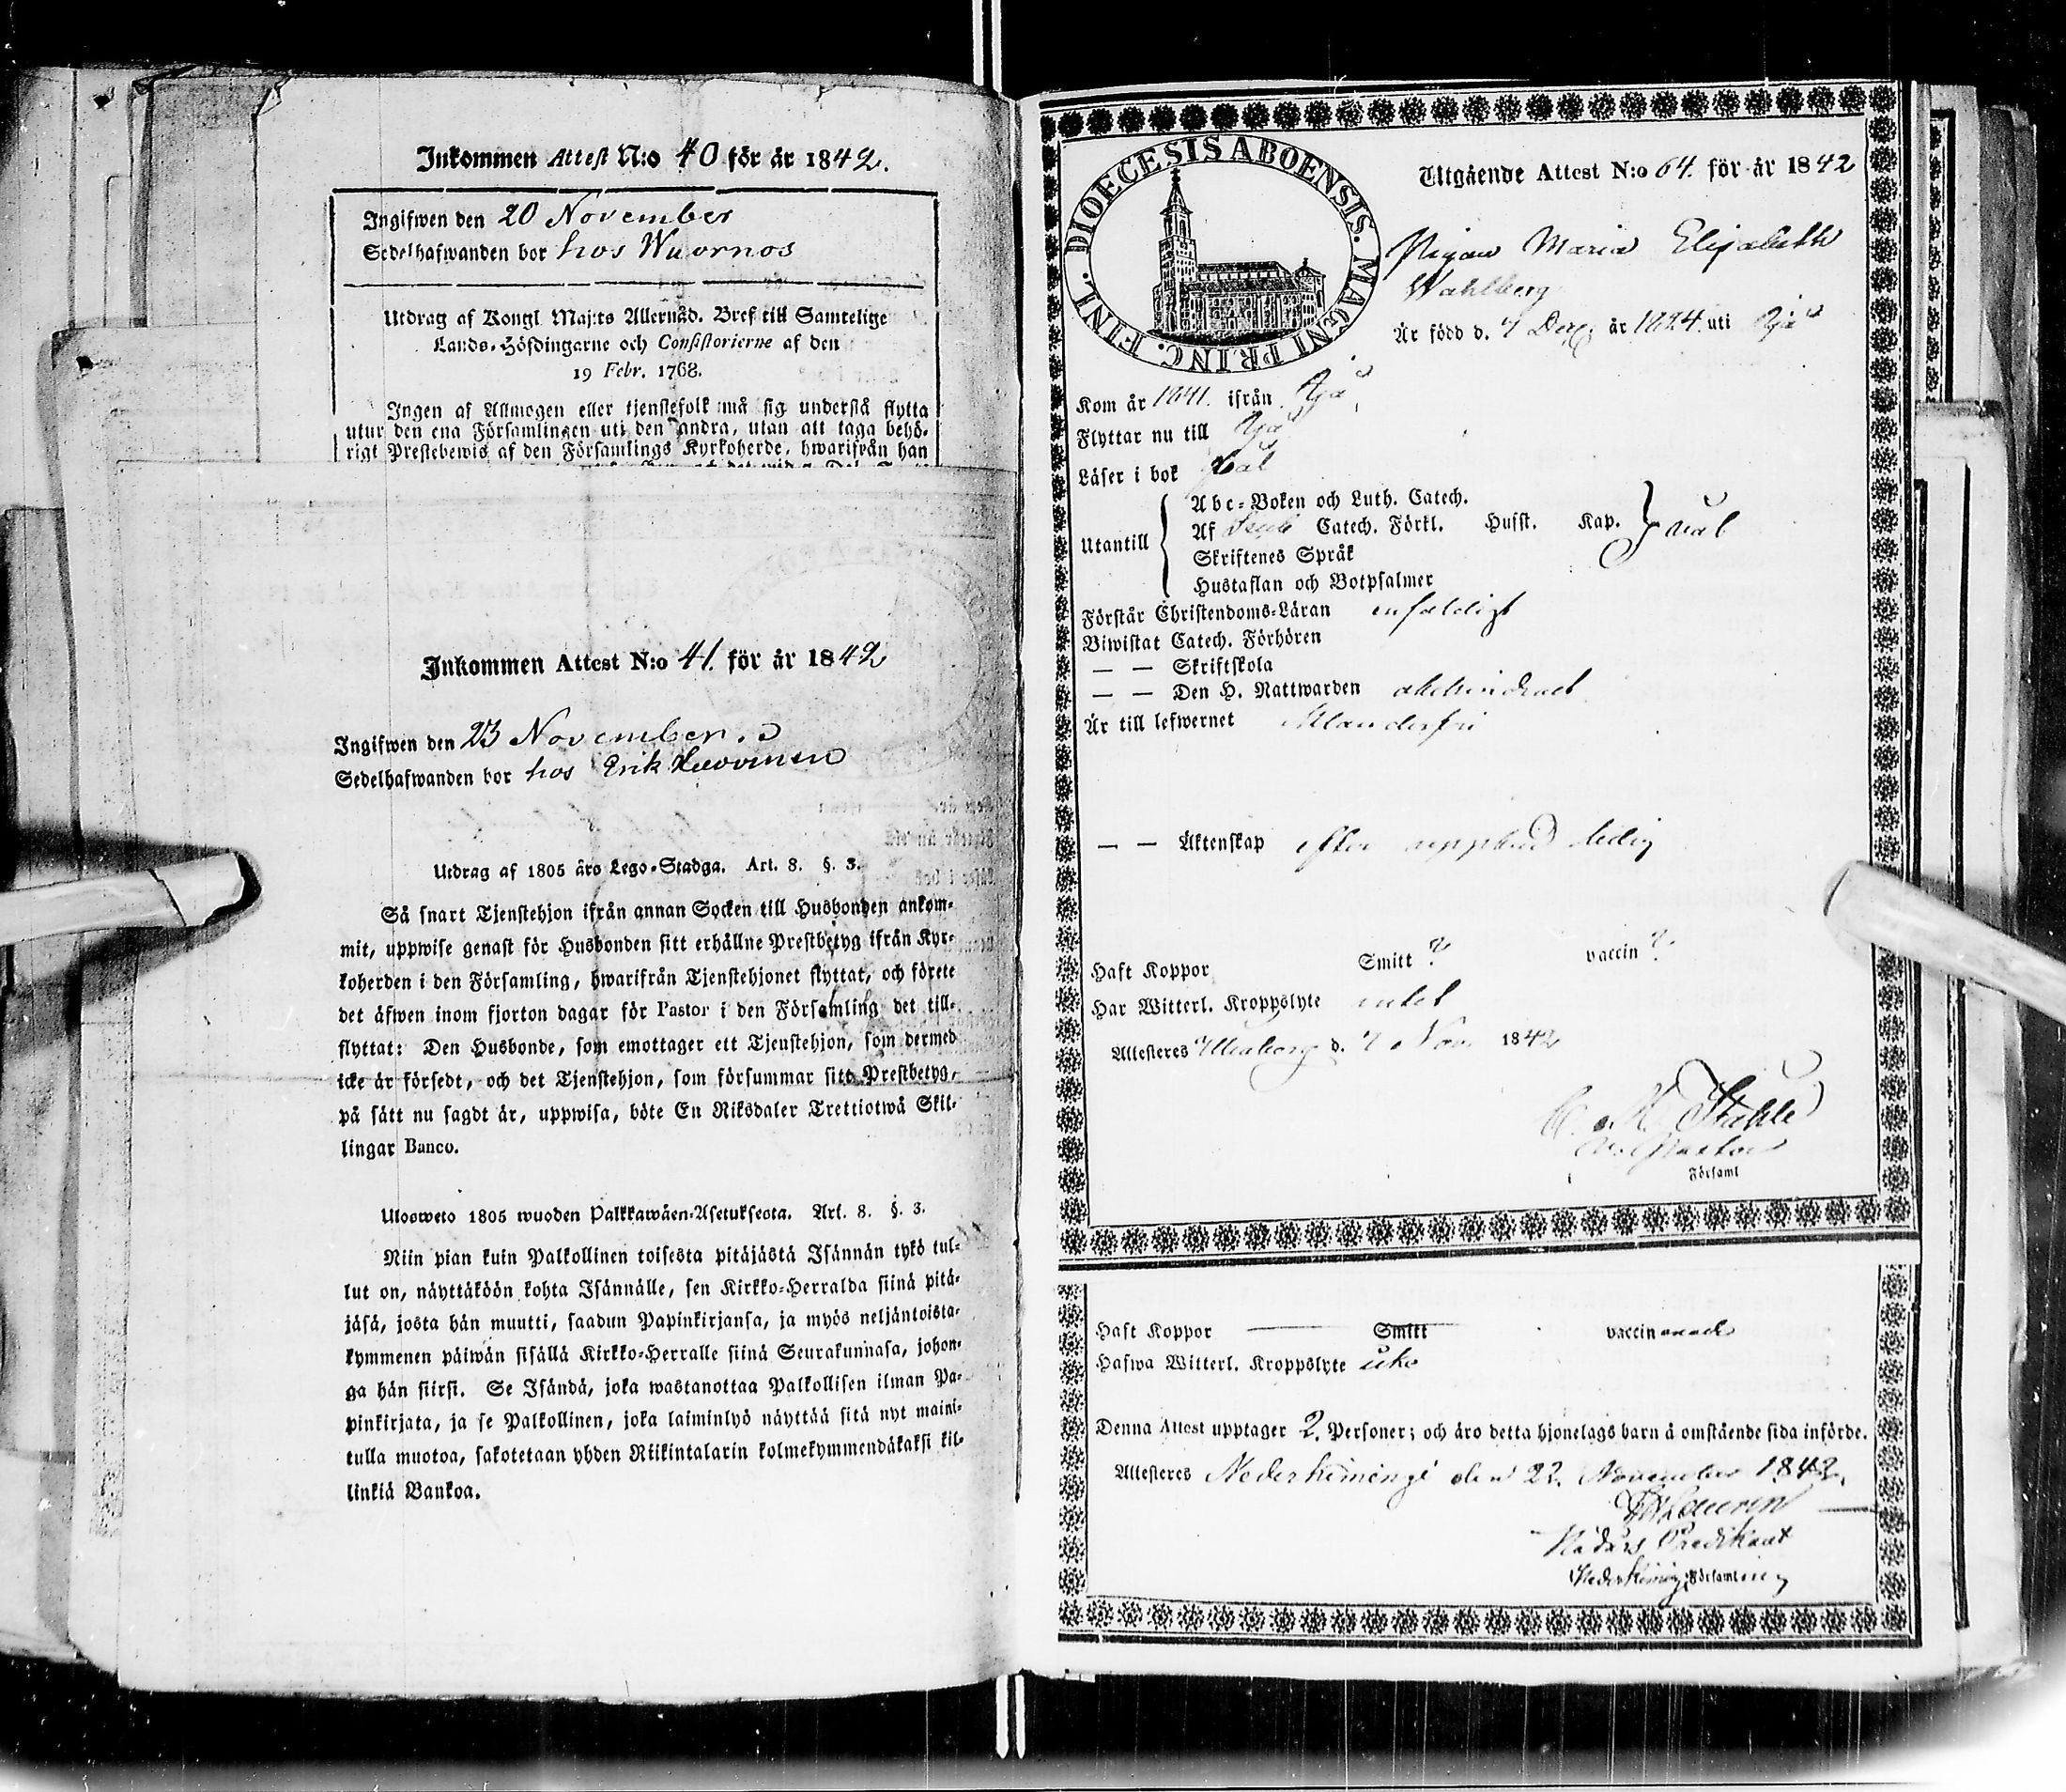 Inkommen Attest N:o 40 för år 1842.
Ingifwen den 20 November
Sedelhafwanden bor hos Wuornos
Utdrag af Kongl Maj:ts Allernåd. Bref till Samtelige
Lands-Höfdingarne och Consistorierne af den
19 Febr. 1768.
Ingen af Allmogen eller tjenstefolk må sig understå flytta
utur den ena Församlingen uti den andra, utan att taga behö-
rigt Prestebewis af den Församlings Kyrkoherde, hwarifrån han
Inkommen Attest N:o 41. för år 1842
Ingifwen den 23 November.
Sedelhafwanden bor hos Erik
Utdrag af 1805 års Lego-Stadga. Art. 8. §. 3.
Så snart Tjenstehjon ifrån annan Socken till Husbonden ankom-
mit, uppwise genast för Husbonden sitt erhållne Prestbetyg ifrån Kyr-
koherden i den Församling, hwarifrån Tjenstehjonet flyttat, och förete
det äfwen inom fjorton dagar för Pastor i den Församling det till-
flyttat: Den Husbonde, som emottager ett Tjenstehjon, som dermed
icke är försedt, och det Tjenstehjon, som försummar sitt Prestbetyg,
på sätt nu sagdt är, uppwisa, böte En Riksdaler Trettiotwå Skil-
lingar Banco.
Ulosweto 1805 wuoden Palkkawäen-Asetuksesta. Art. 8. §. 3.
Niin pian kuin Palkollinen toisesta pitäjästä Isännän tykö tul-
lut on, näyttäköön kohta Isännälle, sen Kirkko-Herralda siinä pitä-
jäsä, josta hän muutti, saadun Papinkirjansa, ja myös neljäntoista-
kymmenen päiwän sisällä Kirkko-Herralle siinä Seurakunnasa, johon-
ga hän siirsi. Se Isändä, joka wastanottaa Palkollisen ilman Pa-
pinkirjata, ja se Palkollinen, joka laiminlyö näyttää sitä nyt maini-
tulla muotoa, sakotetaan yhden Riikintalarin kolmekymmendäkaksi kil-
linkiä Bankoa.
DIOECESIS ABOENSIS. MAGNI PRINC. FINL.
Utgående Attest N:o 64. för år 1842
Pigan Maria Elisabeth
Wahlberg
Är född d. 7 Dec. år 1824 uti Ijo
Kom år 1841. ifrån Ijo
Flyttar nu till Ijo
Läser i bok väl
Abc-Boken och Luth. Catech.
Utantill Af Catech. Förkl. Husst. Kap. väl
Skriftenes Språk
Hustaflan och Botpsalmer
Förstår Christendoms-Läran enfaldigt
Biwistat Catech. Förhören
— — Skriftskola
— — Den H. Nattwarden obehindrad
Är till lefwernet klanderfri
— — Äktenskap efter uppbud ledig
Haft Koppor Smitt ? vaccin ?
Har Witterl. Kroppslyte intet
Attesteres Uleåborg d. 7 Nov. 1842
Ståhle
v. Pastor
Församl
Haft Koppor Smitt vaccinerade
Hafwa Witterl. Kroppslyte icke
Denna Attest upptager 2. Personer; och äro detta hjonelags barn å omstående sida införde.
Attesteres Nederkiminge den 22. November 1842.
Nådårs Predikant
Nederkiminge Församling